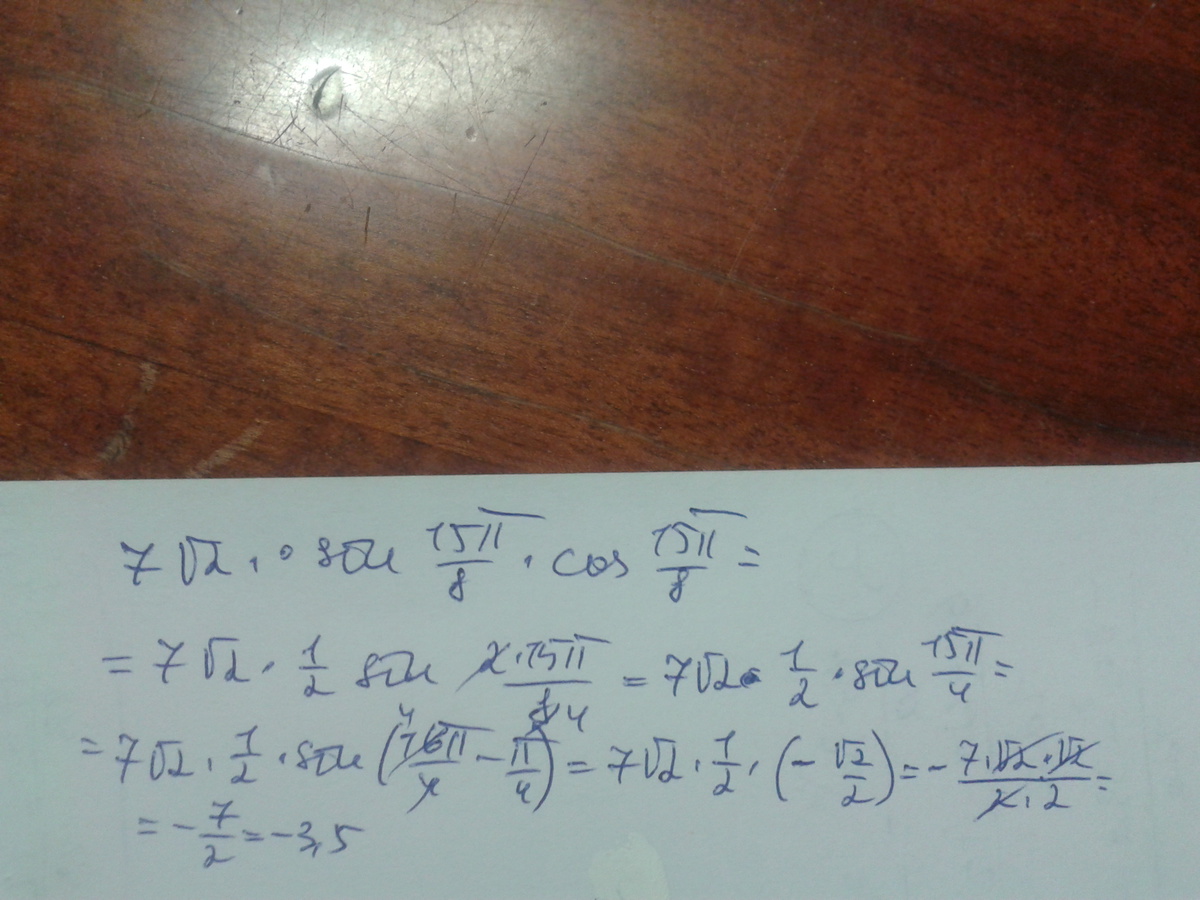 7√2 · sin 15π/8 · cos 15π/8 =
= 7√2 · 1/2 sin 2·15π/8 4 = 7√2 · 1/2 · sin 15π/4 =
= 7√2 · 1/2 · sin (4 16π/4 − π/4) = 7√2 · 1/2 · (− √2/2) = − 7·√2·√2/2·2 =
= − 7/2 = −3,5